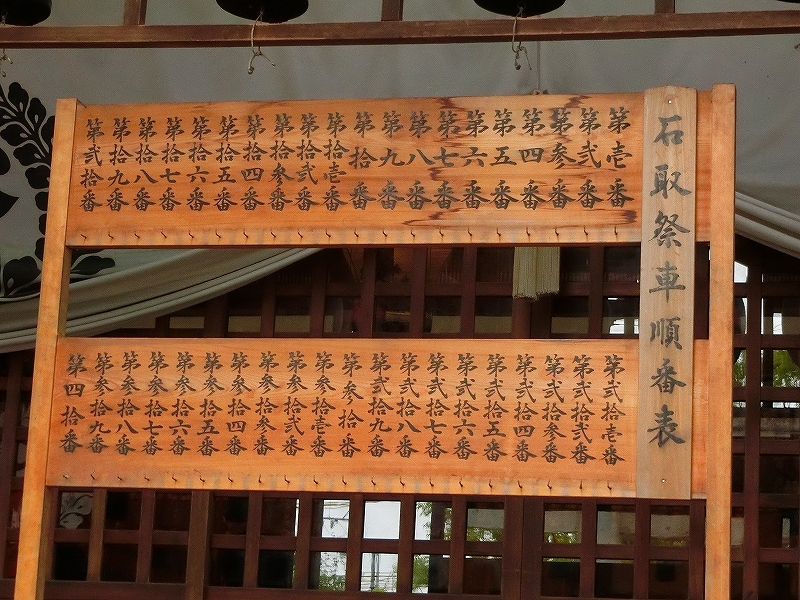 石取祭車順番表
第壱番
第弐番
第参番
第四番
第五番
第六番
第七番
第八番
第九番
第拾番
第拾壱番
第拾弐番
第拾参番
第拾四番
第拾五番
第拾六番
第拾七番
第拾八番
第拾九番
第弐拾番
第弐拾壱番
第弐拾弐番
第弐拾参番
第弐拾四番
第弐拾五番
第弐拾六番
第弐拾七番
第弐拾八番
第弐拾九番
第参拾番
第参拾壱番
第参拾弐番
第参拾参番
第参拾四番
第参拾五番
第参拾六番
第参拾七番
第参拾八番
第参拾九番
第四拾番